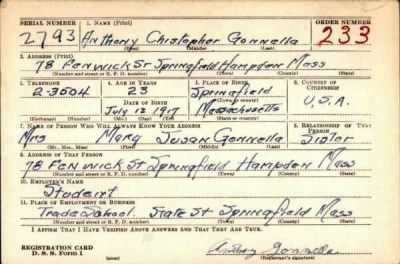 SERIAL NUMBER 1. NAME (Print) ORDER NUMBER
2793 Anthony Chistopher Gonnella 233
(First) (Middle) (Last)
2. ADDRESS (Print)
78 Fenwick St Springfield Hampden Mass
(Number and street or R. F. D. number) (Town) (County) (State)
3. TELEPHONE 4. AGE IN YEARS 5. PLACE OF BIRTH 6. COUNTRY OF CITIZENSHIP
2-3504 23 Springfield
(Town or county)
DATE OF BIRTH
July 12 1917 Massachusetts U.S.A.
(Exchange) (Number) (Mo.) (Day) (Yr.) (State or country)
7. NAME OF PERSON WHO WILL ALWAYS KNOW YOUR ADDRESS 8. RELATIONSHIP OF THAT PERSON
Mrs Mary Susan Gonnella Sister
(Mr., Mrs., Miss) (First) (Middle) (Last)
9. ADDRESS OF THAT PERSON
78 Fenwick St Springfield Hampden Mass
(Number and street or R. F. D. number) (Town) (County) (State)
10. EMPLOYER'S NAME
Student
11. PLACE OF EMPLOYMENT OR BUSINESS
Trade School. State St Springfield Mass
(Number and street or R. F. D. number) (Town) (County) (State)
I AFFIRM THAT I HAVE VERIFIED ABOVE ANSWERS AND THAT THEY ARE TRUE.
REGISTRATION CARD
D. S. S. Form 1
Anthony Gonnella
(Registrant's signature)